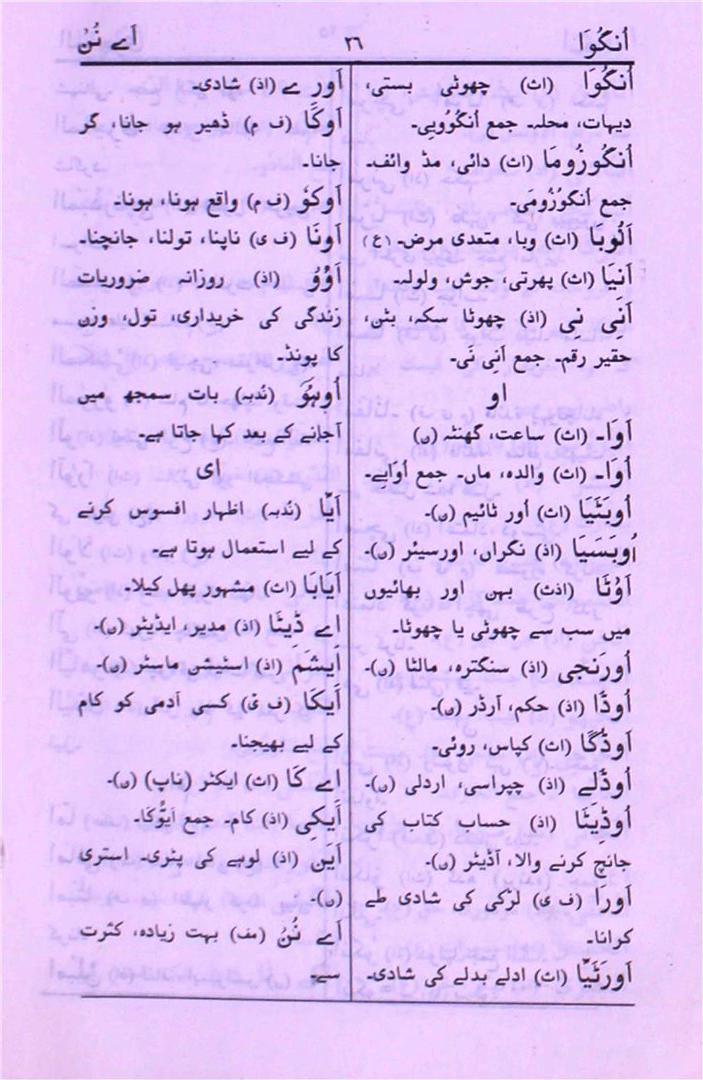 اُنگُوَا ۲۶ اَے نُنْ
اُنگُوَا (اث) چھوٹی بستی،
دیہات، محلہ۔ جمع اُنگُرُوبِی۔
اُنگُوزُومَا (اث) دائی، مڈ وائف۔
جمع اُنگُوزُومَی۔
اَلُوبَا (اث) وبا، متعدی مرض۔ (ع)
اَنِیَا (اث) پھرتی، جوش، ولولہ۔
اَنِی نِی (اذ) چھوٹا سکہ، بٹن،
حقیر رقم۔ جمع اَنِی نَی۔
او
اَوَا۔ (اث) ساعت، گھنٹہ (ں)
اُوَا۔ (اث) والدہ، ماں۔ جمع اُوَایے۔
اُوبَتَیَا (اث) اُور ٹائیم (ں)۔
اُوبَسَیَا (اذ) نگراں، اورسیئر (ں)۔
اَوُتَا (اذث) بہن اور بھائیوں
میں سب سے چھوٹی یا چھوٹا۔
اُورَنجی (اذ) سنگترہ، مالٹا (ں)۔
اُودَّا (اذ) حکم، آرڈر (ں)۔
اَودُگَا (اث) کپاس، روئی۔
اُودَّلے (اذ) چپراسی، اردلی (ں)۔
اُودِیتَا (اذ) حساب کتاب کی
جانچ کرنے والا، آڈیٹر (ں)۔
اَورا (ف ی) لڑکی کی شادی طے
کرانا۔
اَورَتَیَّا (اث) ادلے بدلے کی شادی۔
اَور ے (اذ) شادی۔
اَوکَّا (ف م) ڈھیر ہو جانا، گر
جانا۔
اَوکَوْ (ف م) واقع ہونا، ہونا۔
اَونَا (ف ی) ناپنا، تولنا، جانچنا۔
اَوْوُ (اذ) روزانہ ضروریات
زندگی کی خریداری، تول، وزن
کا پونڈ۔
اُوہوَ (نُدبہ) بات سمجھ میں
آجانے کے بعد کہا جاتا ہے۔
ای
اَیَّا (نُدبہ) اظہار افسوس کرنے
کے لیے استعمال ہوتا ہے۔
اَیَابَا (اث) مشہور پھل کیلا۔
اے ڈیتَا (اذ) مدیر، ایڈیٹر (ں)۔
اییشَم (اذ) اسٹیشن ماسٹر (ں)۔
اَیکَا (ف ق) کسی آدمی کو کام
کے لیے بھیجنا۔
اے کَا (اث) ایکٹر (ناپ) (ں)۔
اَیکی (اذ) کام۔ جمع اَیُّوکَا۔
اَین (اذ) لوہے کی پٹری۔ استری
(ں)۔
اَے نُنْ (مف) بہت زیادہ، کثرت
سے۔